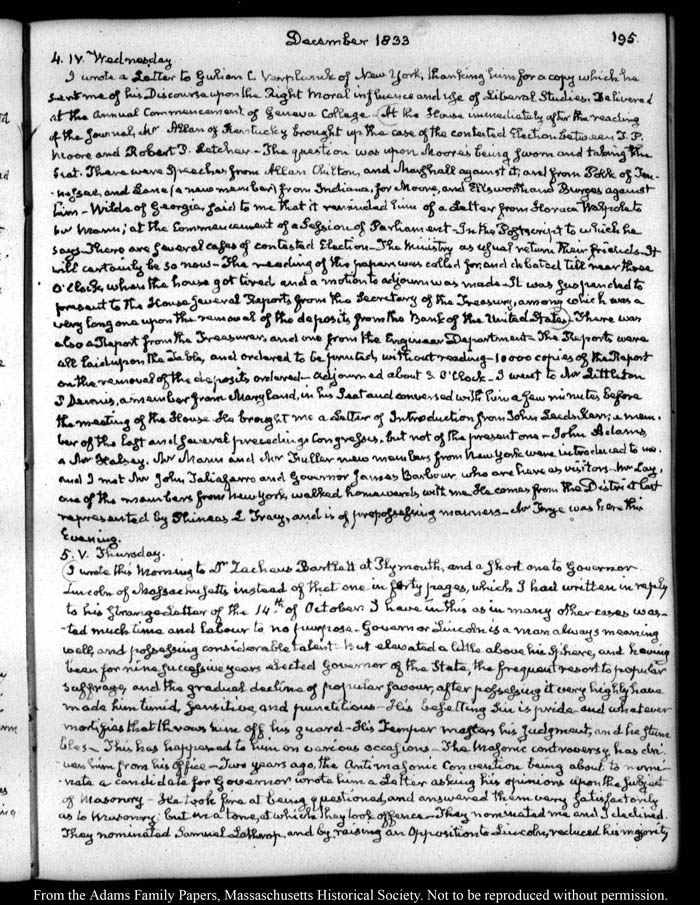 December 1833
195.
4. IV. Wednesday
I wrote a Letter to Gulian C. Verplanck of New York, thanking him for a copy which he
sent me of his Discourse upon the Right Moral influence and use of Liberal Studies. Delivered
at the Annual Commencement of Geneva College. At the House immediately after the reading
of the Journal, Mr Allan of Kentucky brought up the case of the contested Election between T. P.
Moore and Robert P. Letcher— The question was upon Moore's being sworn and taking the
Seat. There were Speeches from Allan, Chilton, and Marshall against it, and from Polk of Ten-
nessee, and Lane (a new member) from Indiana, for Moore, and Ellsworth and Burges against
him— Wilde of Georgia, said to me that it reminded him of a Letter from Horace Walpole to
Mann, at the Commencement of a Session of Parliament— In the Postscript to which he
says— There are several cases of contested Election— The Ministry as usual return their friends— It
will certainly be so now— The reading of the papers was called for, and debated till near three
O'Clock, when the house got tired and a motion to adjourn was made— It was suspended to
present to the House several Reports from the Secretary of the Treasury, among which was a
very long one upon the removal of the deposits from the Bank of the United States. There was
also a Report from the Treasurer, and one from the Engineer Department— The Reports were
all laid upon the Table, and ordered to be printed, without reading— 10000 copies of the Report
on the removal of the deposits ordered— Adjourned about 3. O'Clock— I went to Mr Littleton
P Dennis, a member from Maryland, in his Seat and conversed with him a few minutes before
the meeting of the House. He brought me a Letter of Introduction from John Leeds Kerr; a mem-
ber of the last and several preceding Congresses, but not of the present one— John Adams
a Mr Halsey, Mr Mann and Mr Fuller new members from New York were introduced to me.
And I met Mr John Taliaferro and Governor James Barbour who are here as visitors— Mr Lay,
one of the members from New York, walked homewards with me. He comes from the District last
represented by Phineas L Tracy, and is of prepossessing manners— Mr Frye was here this
Evening.
5. V. Thursday.
I wrote this Morning to Dr Zacheus Bartlett at Plymouth, and a short one to Governor
Lincoln of Massachusetts instead of that one in forty pages, which I had written in reply
to his strange Letter of the 14th of October. I have in this as in many other cases was-
ted much time and labour to no purpose— Governor Lincoln is a man always meaning
well, and possessing considerable talent— but elevated a little above his Sphere, and having
been for nine successive years elected Governor of the State, the frequent resort to popular
suffrage, and the gradual decline of popular favour, after possessing it very highly have
made him timid, sensitive, and punctilious— His besetting Sin is pride and whatever
mortifies that throws him off his guard— His Temper masters his Judgment, and he stum
bles— This has happened to him on various occasions— The Masonic controversy has dri-
ven him from his office— Two years ago, the Antimasonic Convention being about to nomi-
nate a candidate for Governor wrote him a Letter asking his opinions upon the subject
of Masonry— He took fire at being questioned, and answered them very satisfactorily
as to Masonry; but in a tone, at which they took offence— They nominated me and I declined.
They nominated Samuel Lathrop, and by raising an Opposition to Lincoln, reduced his majority
From the Adams Family Papers, Massachusetts Historical Society. Not to be reproduced without permission.